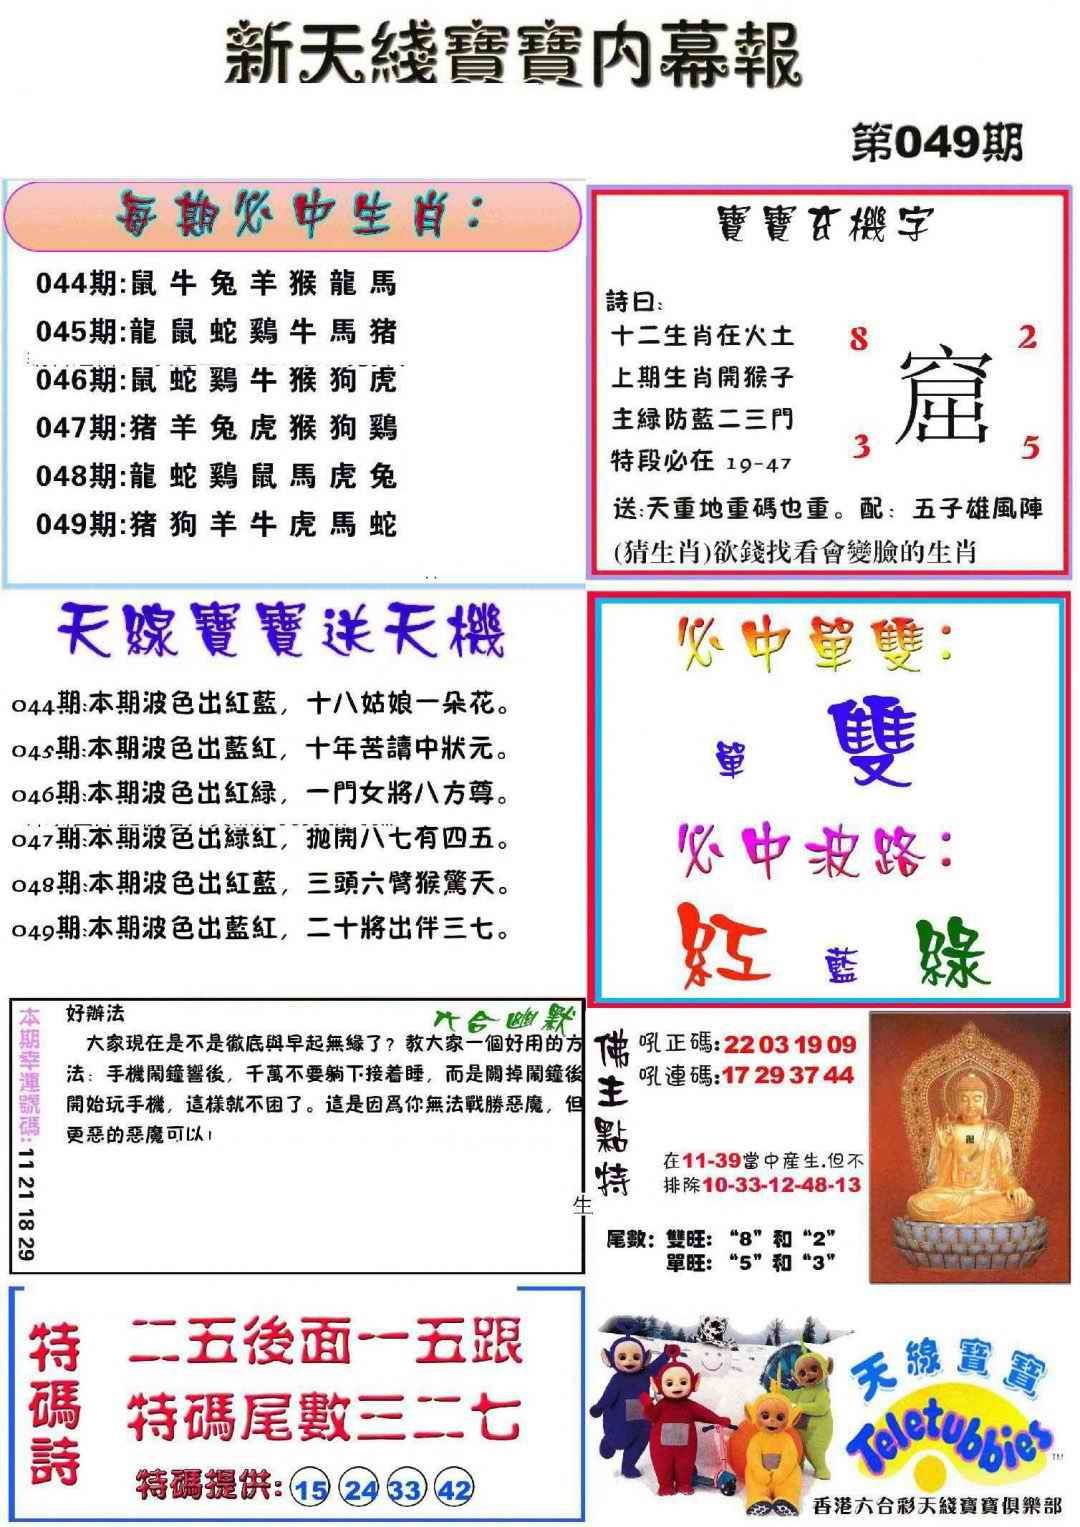 新天綫寶寶内幕報
第049期
每期必中生肖：
044期:鼠牛兔羊猴龍馬
045期:龍鼠蛇鷄牛馬猪
046期:鼠蛇鷄牛猴狗虎
047期:猪羊兔虎猴狗鷄
048期:龍蛇鷄鼠馬虎兔
049期:猪狗羊牛虎馬蛇
寶寶玄機字
詩曰:
十二生肖在火土
上期生肖開猴子
主緑防藍二三門
特段必在 19-47
8 2
窟
3 5
送:天重地重碼也重。配：五子雄風陣
(猜生肖)欲錢找看會變臉的生肖
天線寶寶送天機
044期:本期波色出紅藍，十八姑娘一朵花。
045期:本期波色出藍紅，十年苦讀中狀元。
046期:本期波色出紅緑，一門女將八方尊。
047期:本期波色出緑紅，拋開八七有四五。
048期:本期波色出紅藍，三頭六臂猴驚天。
049期:本期波色出藍紅，二十將出伴三七。
必中單雙：
單 雙
必中波路：
紅 藍 綠
本期幸運號碼:11 21 18 29
六合幽默
好辦法
大家現在是不是徹底與早起無緣了？教大家一個好用的方
法：手機鬧鐘響後，千萬不要躺下接着睡，而是關掉鬧鐘後
開始玩手機，這樣就不困了。這是因爲你無法戰勝惡魔，但
更惡的惡魔可以！
生
佛主點特
吼正碼:22 03 19 09
吼連碼:17 29 37 44
在11-39當中産生.但不
排除10-33-12-48-13
尾數：雙旺：“8”和“2”
單旺：“5”和“3”
特碼詩
二五後面一五跟
特碼尾數三二七
特碼提供: 15 24 33 42
天線寶寶
Teletubbies
TM
香港六合彩天綫寶寶俱樂部